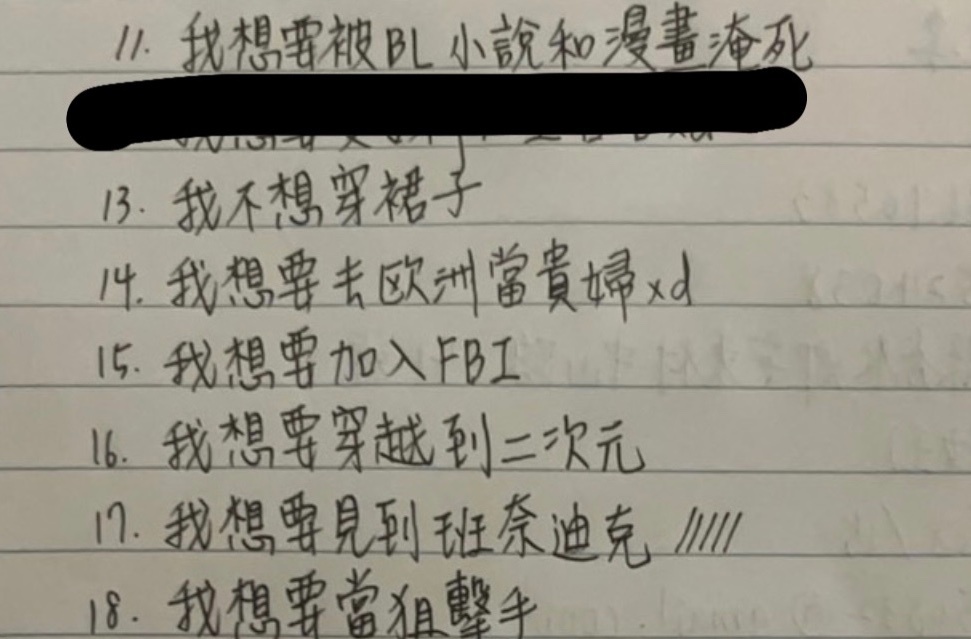 11. 我想要被BL小說和漫畫淹死
13. 我不想穿裙子
14. 我想要去欧洲當貴婦xd
15. 我想要加入FBI
16. 我想要穿越到二次元
17. 我想要見到班奈迪克 /////
18. 我想要當狙擊手